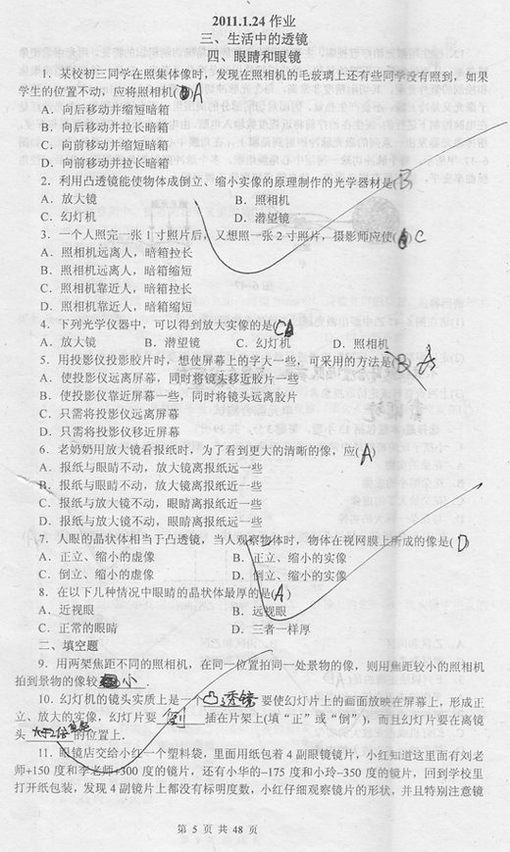 2011.1.24 作业
三、生活中的透镜
四、眼睛和眼镜
1. 某校初三同学在照集体像时，发现在照相机的毛玻璃上还有些同学没有照到，如果
学生的位置不动，应将照相机( A
A. 向后移动并缩短暗箱
B. 向后移动并拉长暗箱
C. 向前移动并缩短暗箱
D. 向前移动并拉长暗箱
2. 利用凸透镜能使物体成倒立、缩小实像的原理制作的光学器材是( B
A. 放大镜 B. 照相机
C. 幻灯机 D. 潜望镜
3. 一个人照完一张 1 寸照片后，又想照一张 2 寸照片，摄影师应使( ) C
A. 照相机远离人，暗箱拉长
B. 照相机远离人，暗箱缩短
C. 照相机靠近人，暗箱拉长
D. 照相机靠近人，暗箱缩短
4. 下列光学仪器中，可以得到放大实像的是( C
A. 放大镜 B. 潜望镜 C. 幻灯机 D. 照相机
5. 用投影仪投影胶片时，想使屏幕上的字大一些，可采用的方法是( B A
A. 使投影仪远离屏幕，同时将镜头移近胶片一些
B. 使投影仪靠近屏幕一些，同时将镜头远离胶片
C. 只需将投影仪远离屏幕
D. 只需将投影仪移近屏幕
6. 老奶奶用放大镜看报纸时，为了看到更大的清晰的像，应( A )
A. 报纸与眼睛不动，放大镜离报纸远一些
B. 报纸与眼睛不动，放大镜离报纸近一些
C. 报纸与放大镜不动，眼睛离报纸近一些
D. 报纸与放大镜不动，眼睛离报纸远一些
7. 人眼的晶状体相当于凸透镜，当人观察物体时，物体在视网膜上所成的像是( D
A. 正立、缩小的虚像 B. 正立、缩小的实像
C. 倒立、缩小的虚像 D. 倒立、缩小的实像
8. 在以下几种情况中眼睛的晶状体最厚的是( A )
A. 近视眼 B. 远视眼
C. 正常的眼睛 D. 三者一样厚
二、填空题
9. 用两架焦距不同的照相机，在同一位置拍同一处景物的像，则用焦距较小的照相机
拍到景物的像较 小 .
10. 幻灯机的镜头实质上是一个 凸透镜 要使幻灯片上的画面放映在屏幕上，形成正
立、放大的实像，幻灯片要 倒 插在片架上(填“正”或“倒”)，而且幻灯片要在离镜
头 的位置上.
11. 眼镜店交给小红一个塑料袋，里面用纸包着 4 副眼镜镜片，小红知道这里面有刘老
师+150 度和李老师+300 度的镜片，还有小华的–175 度和小玲–350 度的镜片，回到学校里
打开纸包装，发现 4 副镜片上都没有标明度数，小红仔细观察镜片的形状，并且特别注意镜
第 5 页 共 48 页